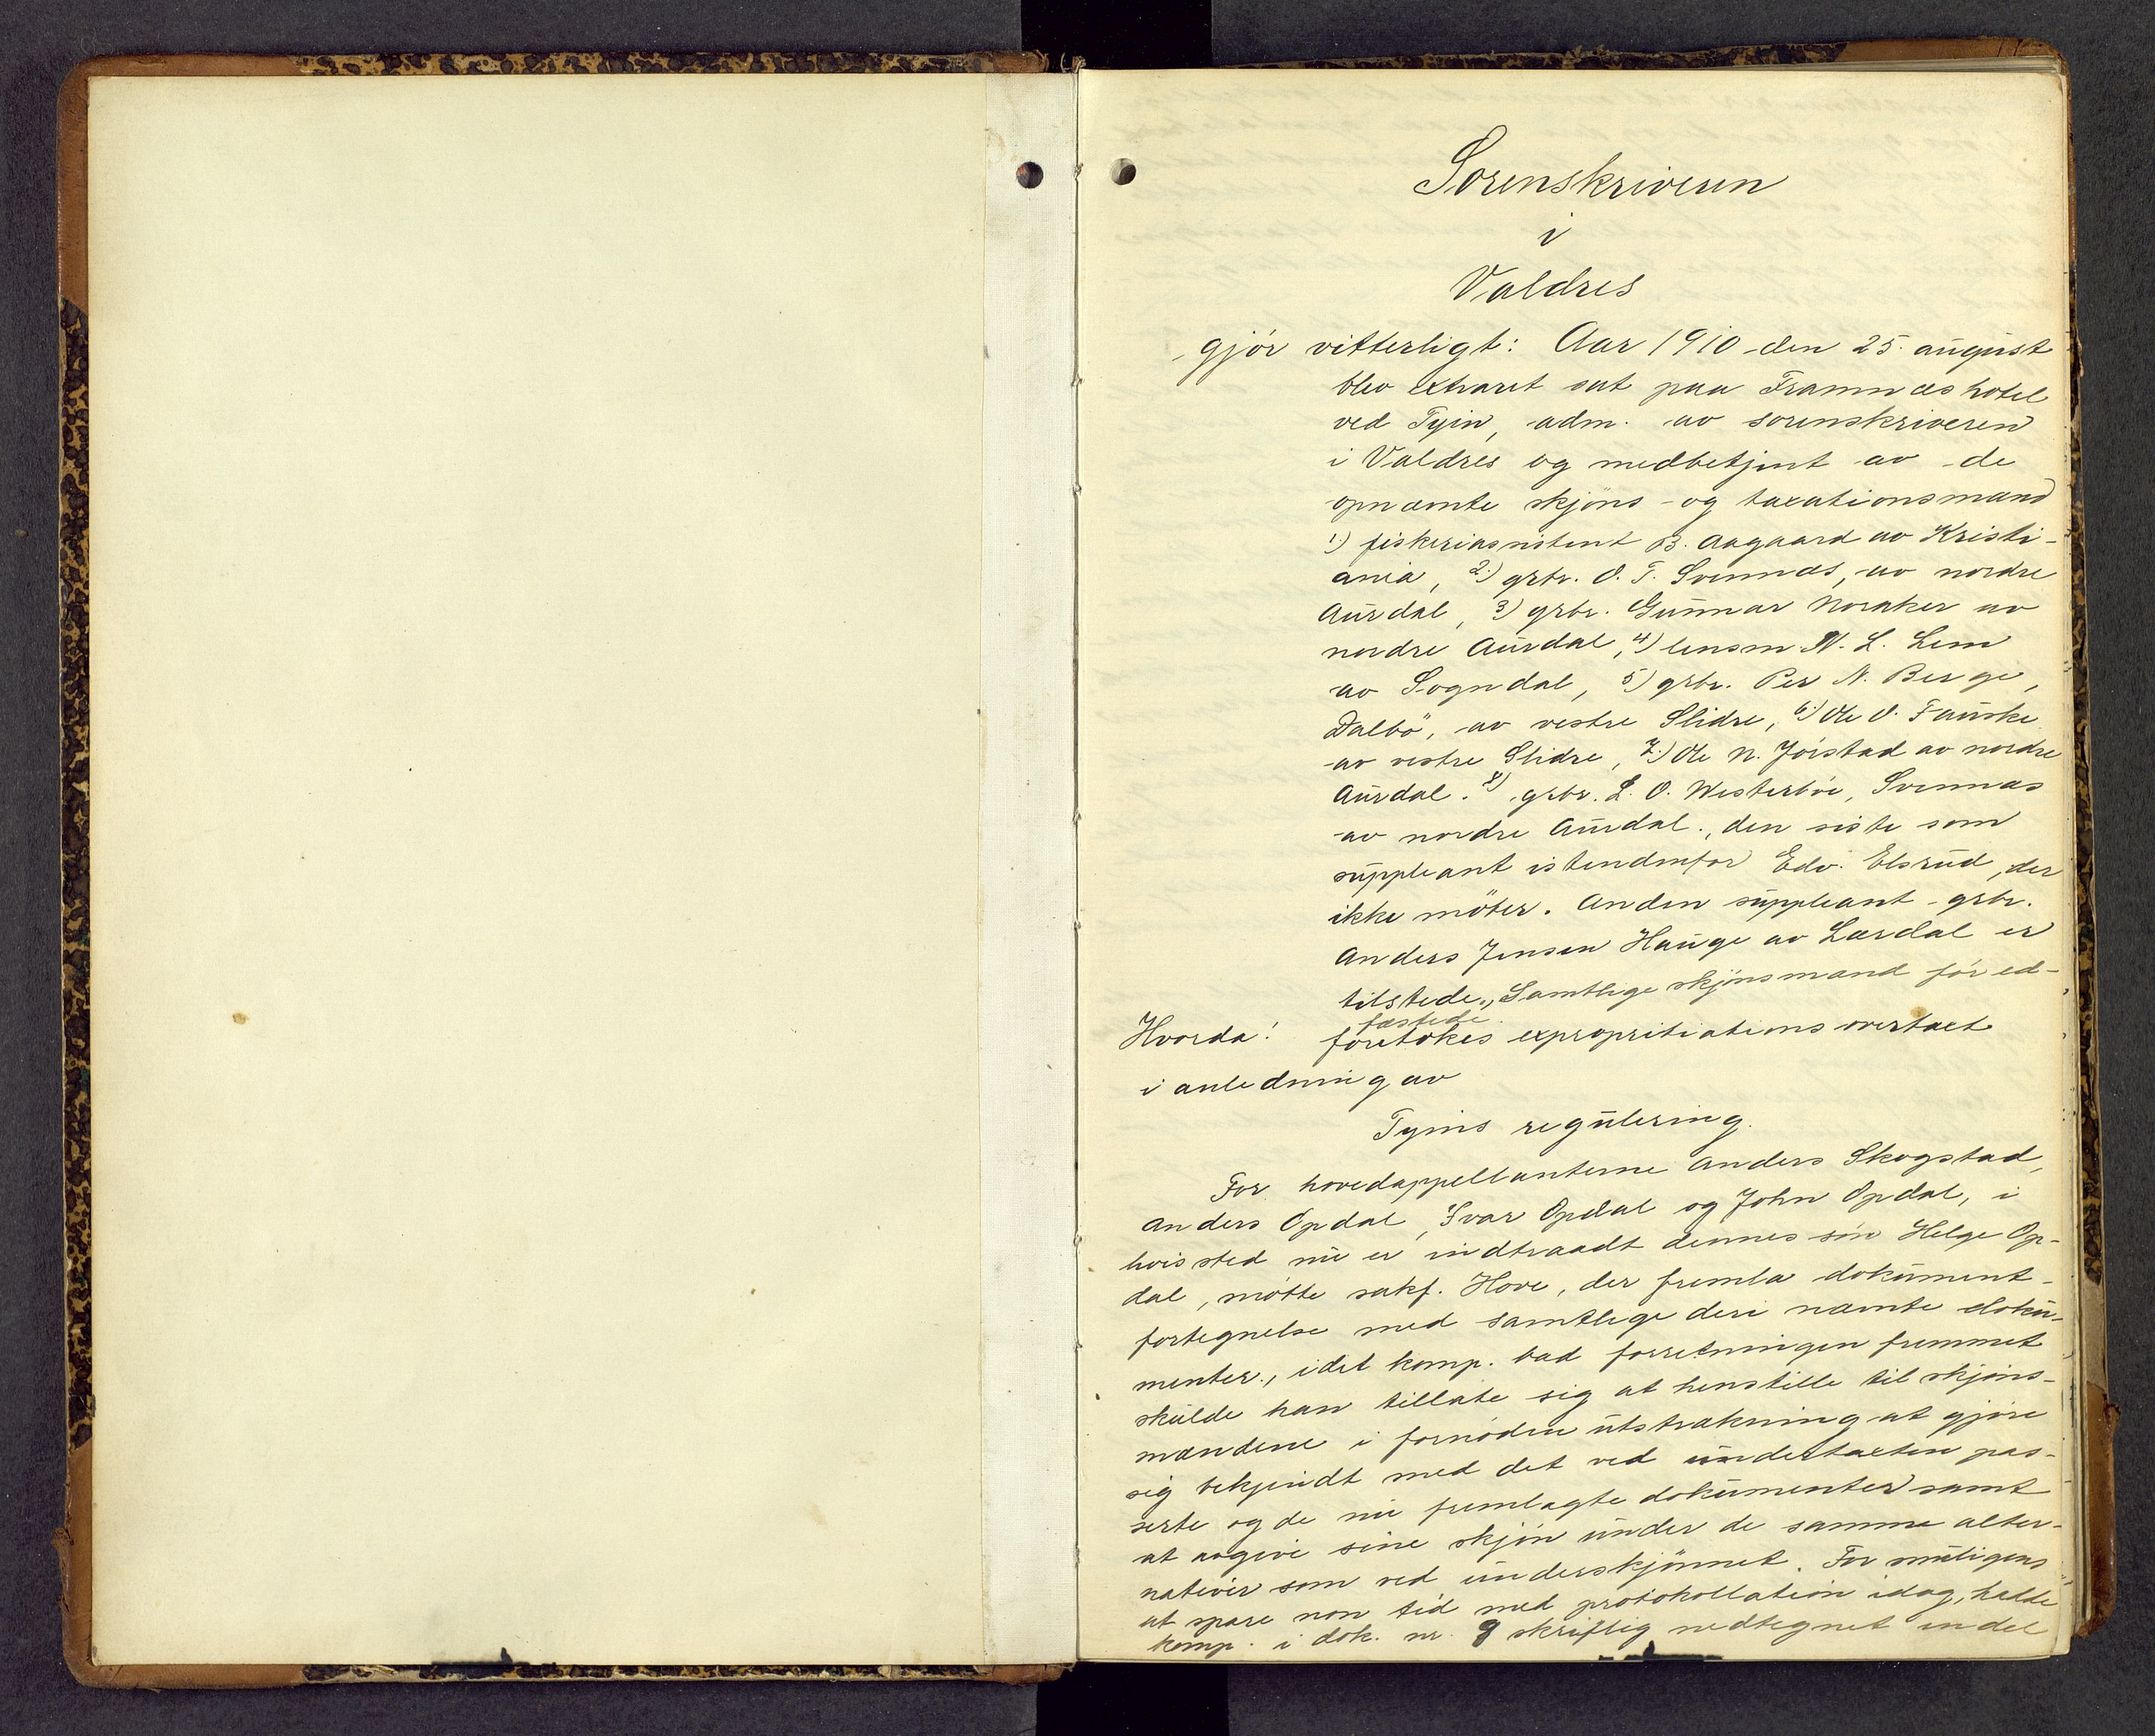 Sorenskriveren
i
Valdres
gjör vitterligt: Aar 1910 den 25. august
blev extraret sat paa Framnæs hotel
ved Tyin, adm. av sorenskriveren
i Valdres og medbetjent av de
opnævnte skjöns- og taxationsmænd
1.) fiskeriassistent B. Aagaard av Kristi-
ania, 2.) grbr. O. T. Svennæs, av nordre
Aurdal, 3) grbr. Gunnar Noraker av
nordre Aurdal, 4) lensm N. L. Lem
av Sogndal, 5) grbr. Per N. Berge,
Dalbö, av vestre Slidre, 6.) Ole O. Fauske
av vestre Slidre, 7.) Ole N. Jörstad av nordre
Aurdal. 8) grbr. L. O. Westerböe, Svennæs
av nordre Aurdal., den siste som
suppleant istendenfor Edv. Elsrud, der
ikke möter. Anden suppleant grbr.
Anders Jensen Hauge av Lærdal er
tilstede., Samtlige skjönsmænd för ed-
fæstede.
Hvorda! foretokes expropritiations overtaxt
i anledning av
Tyins regulering.
For hovedappellanterne Anders Skogstad,
Anders Opdal, Ivar Opdal og John Opdal, i
hvis sted nu er indtraadt dennes sön Helge Op-
dal, mötte sakf. Hove, der fremla dokument-
fortegnelse med samtlige deri nævnte doku-
menter., idet komp. bad forretningen fremmet
skulde han tillate sig at henstille til skjöns-
mændene i fornöden utstrækning at gjöre
sig bekjendt med det ved undertaxten pas-
serte og de nu fremlagte dokumenter samt
at avgive sine skjön under de samme alter-
nativer som ved underskjönnet. For muligens
at spare non tid med protokollation idag, hadde
komp. i dok. nr. 9 skriftlig nedtegnet en del